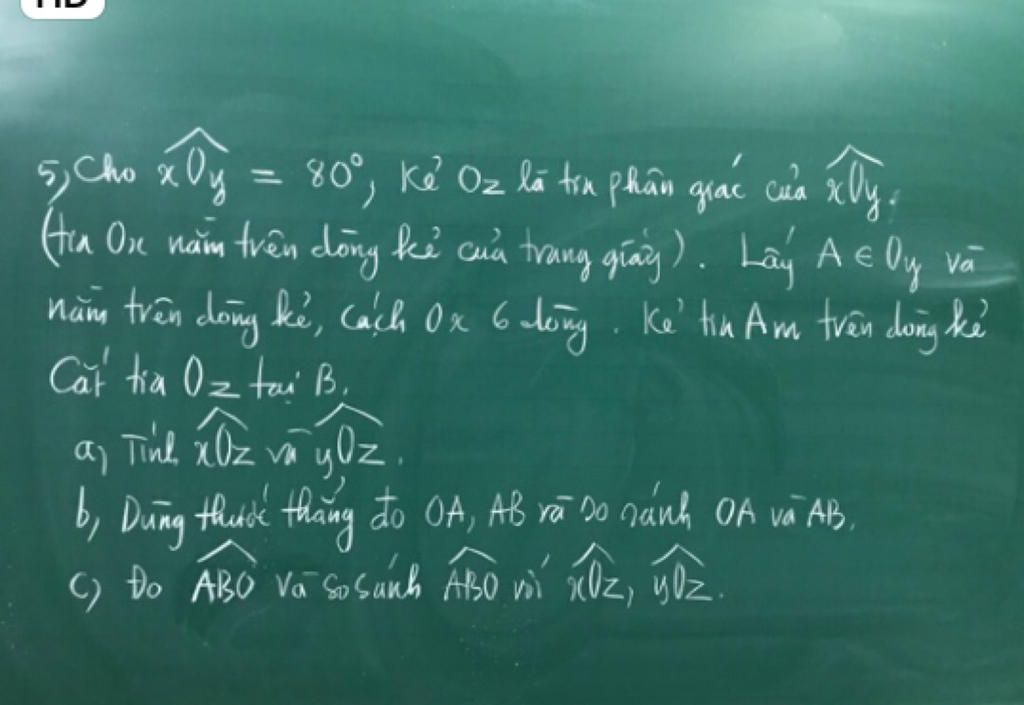 HD
5, Cho xOy = 80°, Kẻ Oz là tia phân giác của xOy.
(tia Ox nằm trên dòng kẻ của trang giấy). Lấy A ∈ Oy và
nằm trên dòng kẻ, cách Ox 6 dòng. Kẻ tia Am trên dòng kẻ
Cắt tia Oz tại B.
a, Tính xOz và yOz.
b, Dùng thước thẳng đo OA, AB và so sánh OA và AB.
c, Đo ABO và so sánh ABO với xOz, yOz.